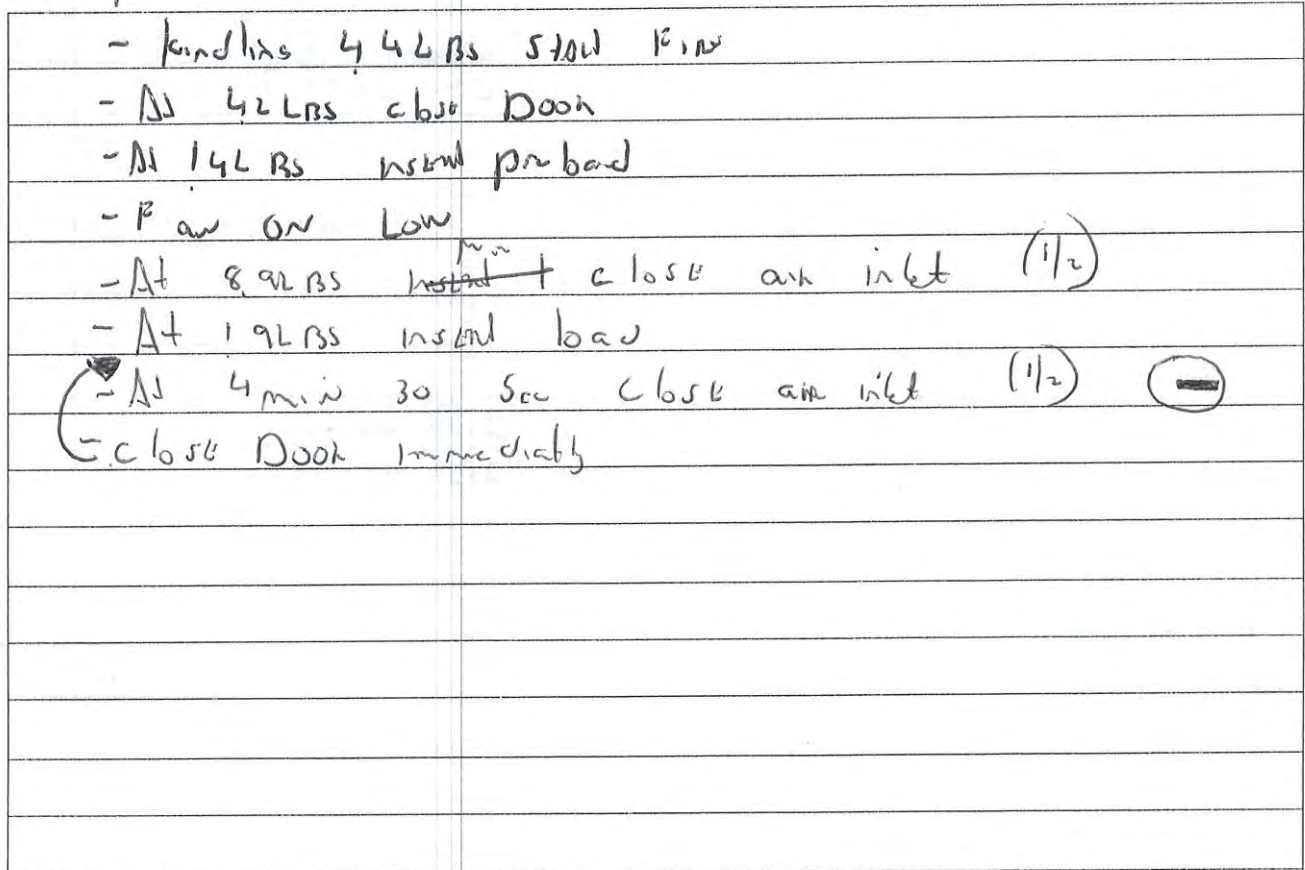 - Kindling 4.4 LBS start Fire
- At 4.2 LBS close Door
- At 1.4 LBS insert preload
- Fan ON Low
- At 8.9 LBS close air inlet (1/2)
- At 1.9 LBS insert load
- At 4 min 30 Sec Close air inlet (1/2) -
- close Door immediatly